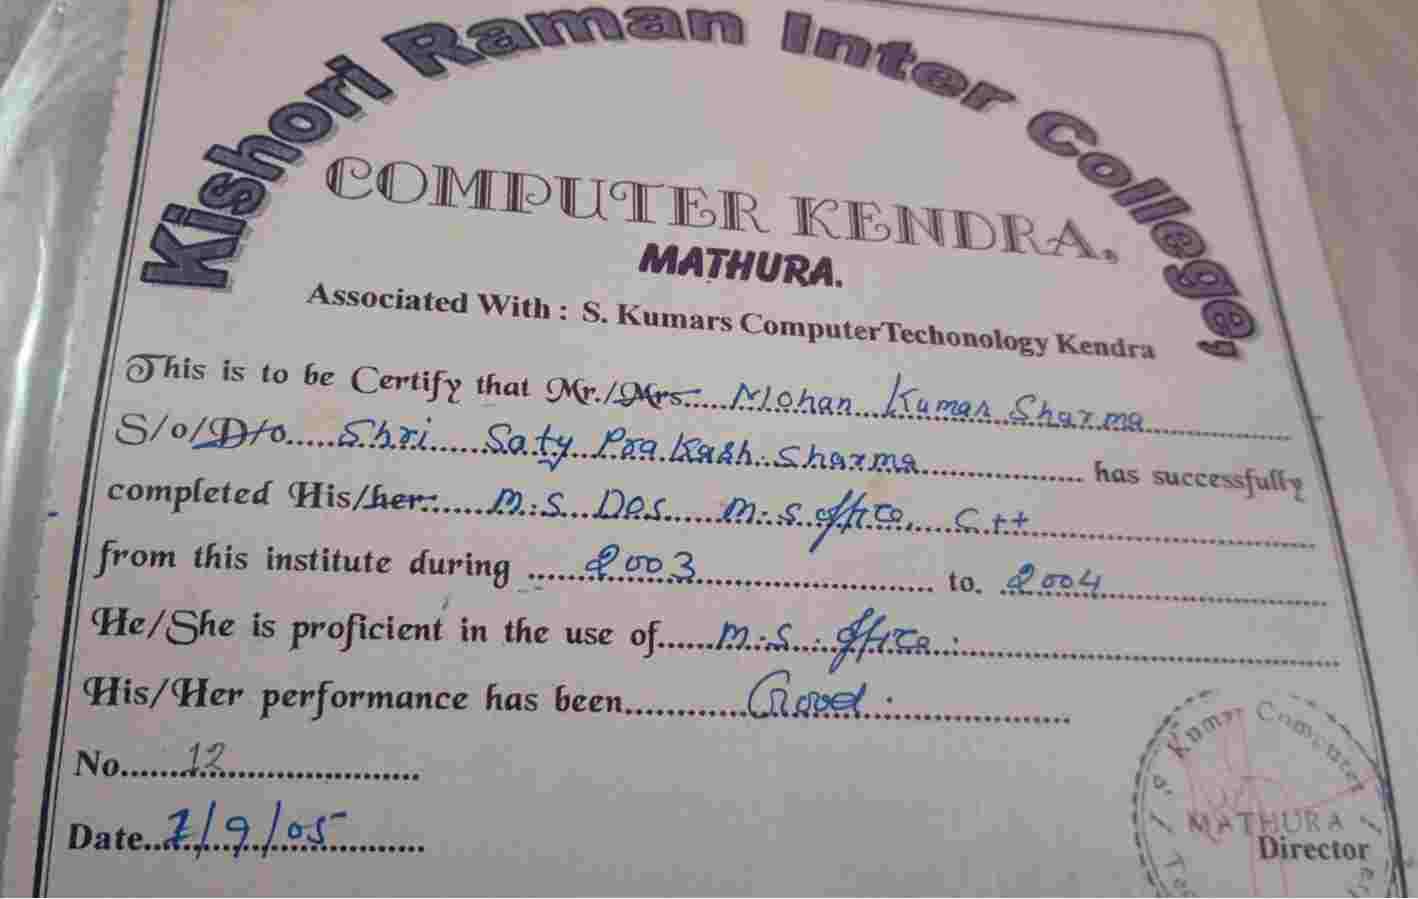 Kishori Raman Inter College,
COMPUTER KENDRA,
MATHURA.
Associated With : S. Kumars ComputerTechonology Kendra
This is to be Certify that Mr./Mrs..... Mohan Kumar Sharma
S/o/D/o..... Shri Saty Prakash Sharma ............ has successfully
completed His/her: M.S. Dos M.S office, C++
from this institute during ...... 2003 ............ to. 2004
He/She is proficient in the use of...... M.S. office.
His/Her performance has been............ Good.
No....... 12
Date.. 7/9/05
S. Kumar Computer
MATHURA
Director